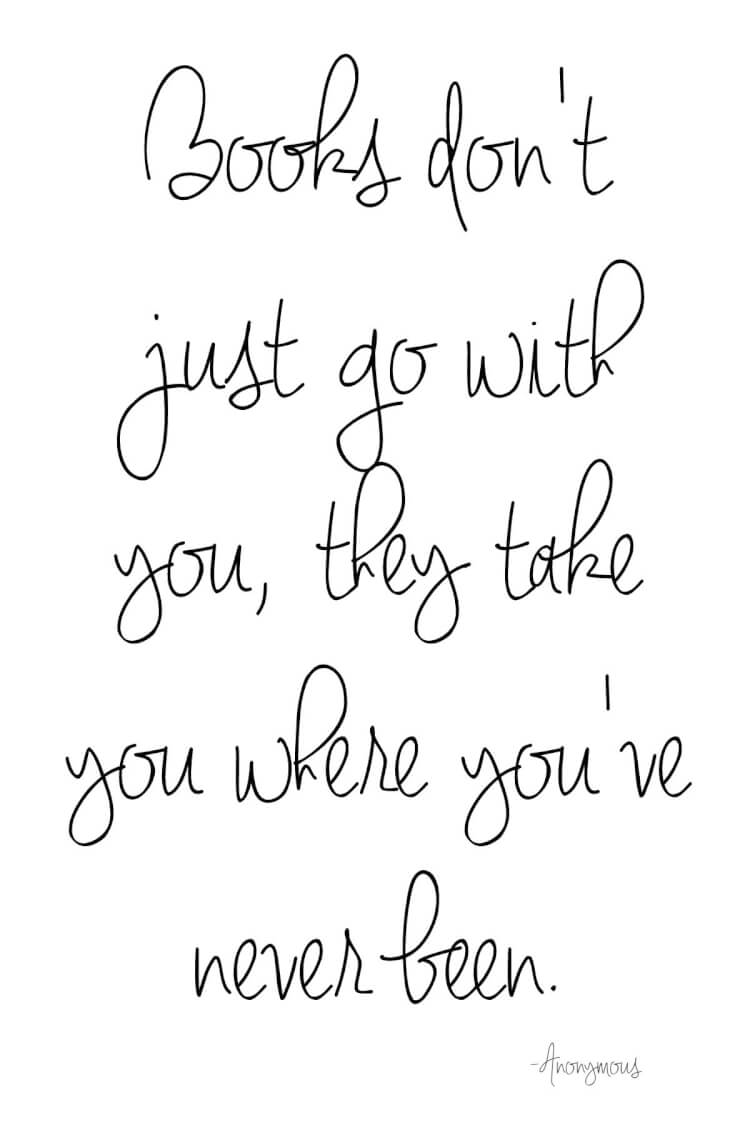 Books don't
just go with
you, they take
you where you've
never been.
-Anonymous